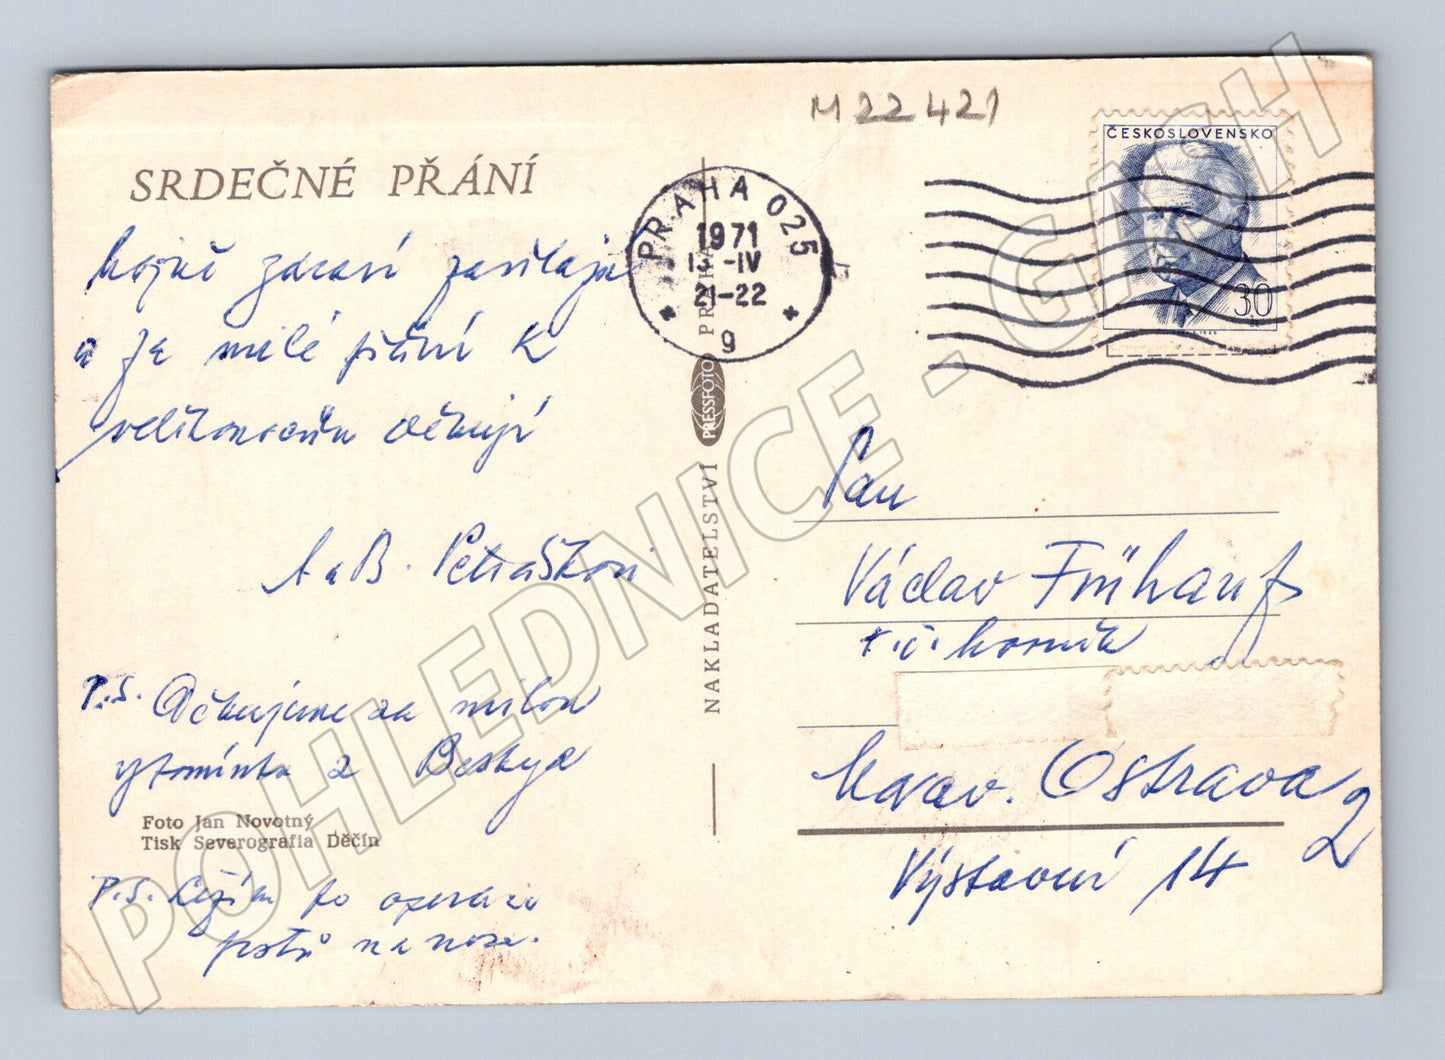 M 22 421
SRDEČNÉ PŘÁNÍ
Hojně zdraví zasílají
a za milé přání k
velikonocům děkují
A a B. Petráškovi
P.S. Děkujeme za milou
vzpomínku z Beskyd
Foto Jan Novotný
Tisk Severografia Děčín
P.S. Ležím po operaci
prstů na noze.
PRAHA 025
1971
13.-IV
21-22
9
NAKLADATELSTVÍ PRESSFOTO PRAHA
ČESKOSLOVENSKO
30
h
Pan
Václav Frühauf
t.č. horník
Morav. Ostrava 2
Výstavní 14
POHLEDNICE - GASH